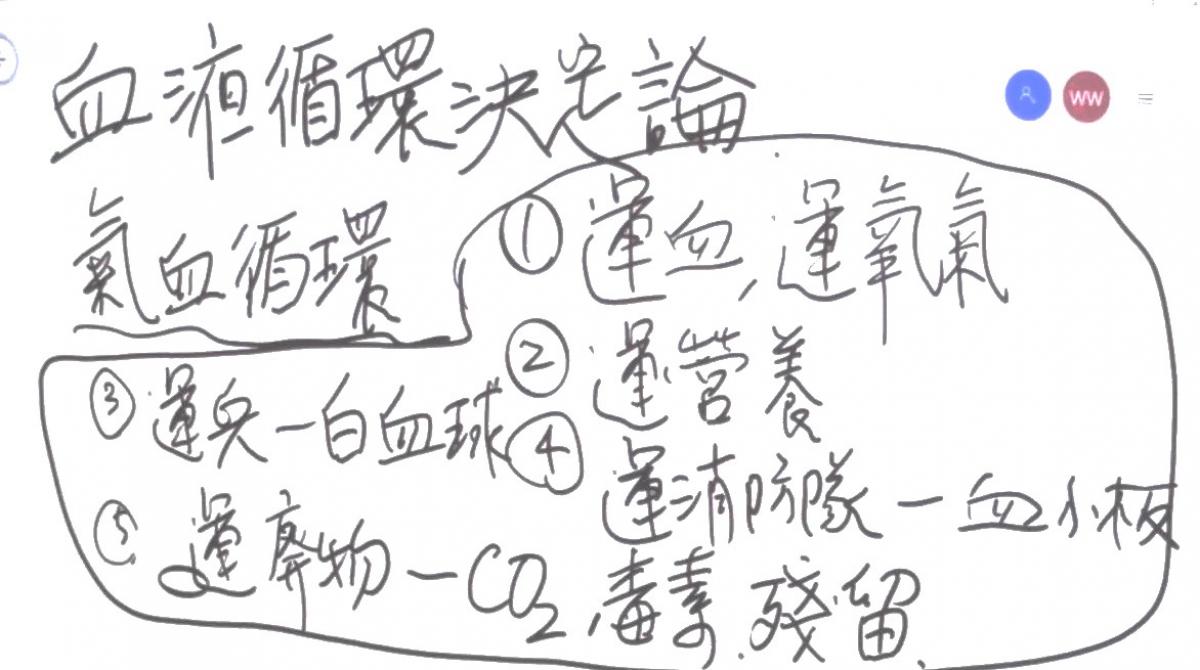 血液循環決定論
WW
氣血循環
① 運血,運氧氣
② 運營養
③ 運兵－白血球
④ 運消防隊－血小板
⑤ 運廢物－CO2,毒素、殘留